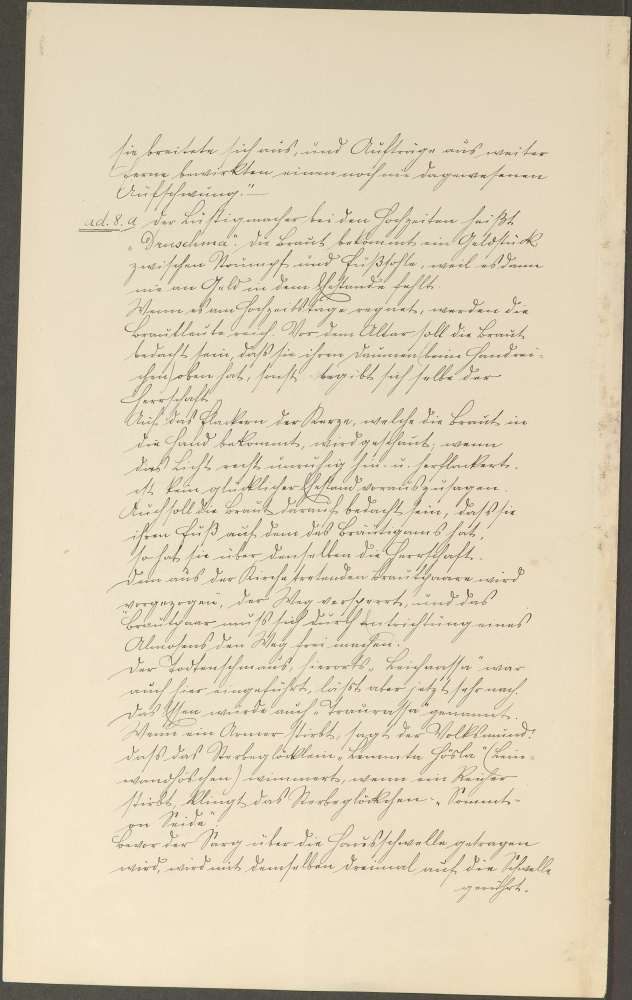 sie breitete sich aus, und Aufträge aus weiter
Ferne bewirkten einen noch nie dagewesenen
Aufschwung."—
ad. 8. a der Lustigmacher bei den Hochzeiten heißt
„Druschma". Die Braut bekommt ein Geldstück
zwischen Strumpf und Fußsohle, weil es dann
nie an Geld in dem Ehestande fehlt.
Wenn es am Hochzeitstage regnet, werden die
Brautleute reich. Vor dem Altar soll die Braut
bedacht sein, daß sie ihren Daumen beim Handrei-
chen oben hat, sonst begibt sich selbe der
Herrschaft.
Auf das Flackern der Kerze, welche die Braut in
die Hand bekommt, wird geschaut, wenn
das Licht recht unruhig hin u. herflackert.
ist kein glücklicher Ehestand vorauszusagen.
Auch soll die Braut darauf bedacht sein, daß sie
ihren Fuß auf dem des Bräutigams hat,
so hat sie über denselben die Herrschaft.
Dem aus der Kirche tretenden Brautpaare wird
vorgezogen, der Weg versperrt, und das
Brautpaar muß sich durch Entrichtung eines
Almosens den Weg frei machen.
Der Todtenschmaus, hierorts „Leichenassa" war
auch hier eingeführt, läßt aber jetzt sehr nach.
Das Essen wurde auch „Trauerassa" genannt.
Wenn ein Armer stirbt, sagt der Volksmund:
daß das Sterbeglöcklein „Lemmta Hösla" (Lein-
wandhöschen) wimmert, wenn ein Reicher
stirbt, klingt das Sterbeglöckchen: „Sommt-
on Seide"
Bevor der Sarg über die Hausschwelle getragen
wird, wird mit demselben dreimal auf die Schwelle
gerührt.